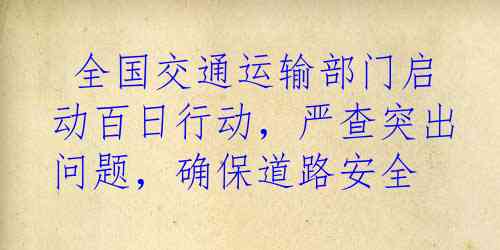 全国交通运输部门启
动百日行动，严查突出
问题，确保道路安全